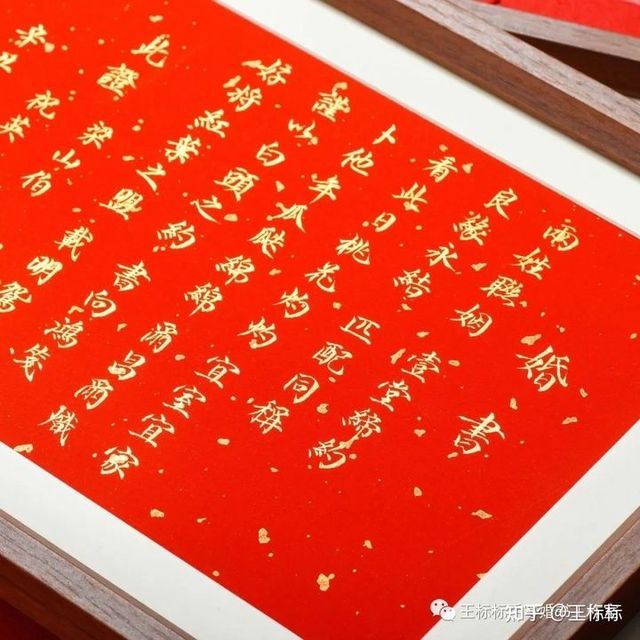 婚書
兩姓聯姻 壹堂締約
良緣永結 匹配同稱
看此日桃花灼灼 宜室宜家
卜他年瓜瓞綿綿 爾昌爾熾
謹以白頭之約 書向鴻箋
好將紅葉之盟 載明鴛
此證
梁山伯
祝英
知乎 @王标标